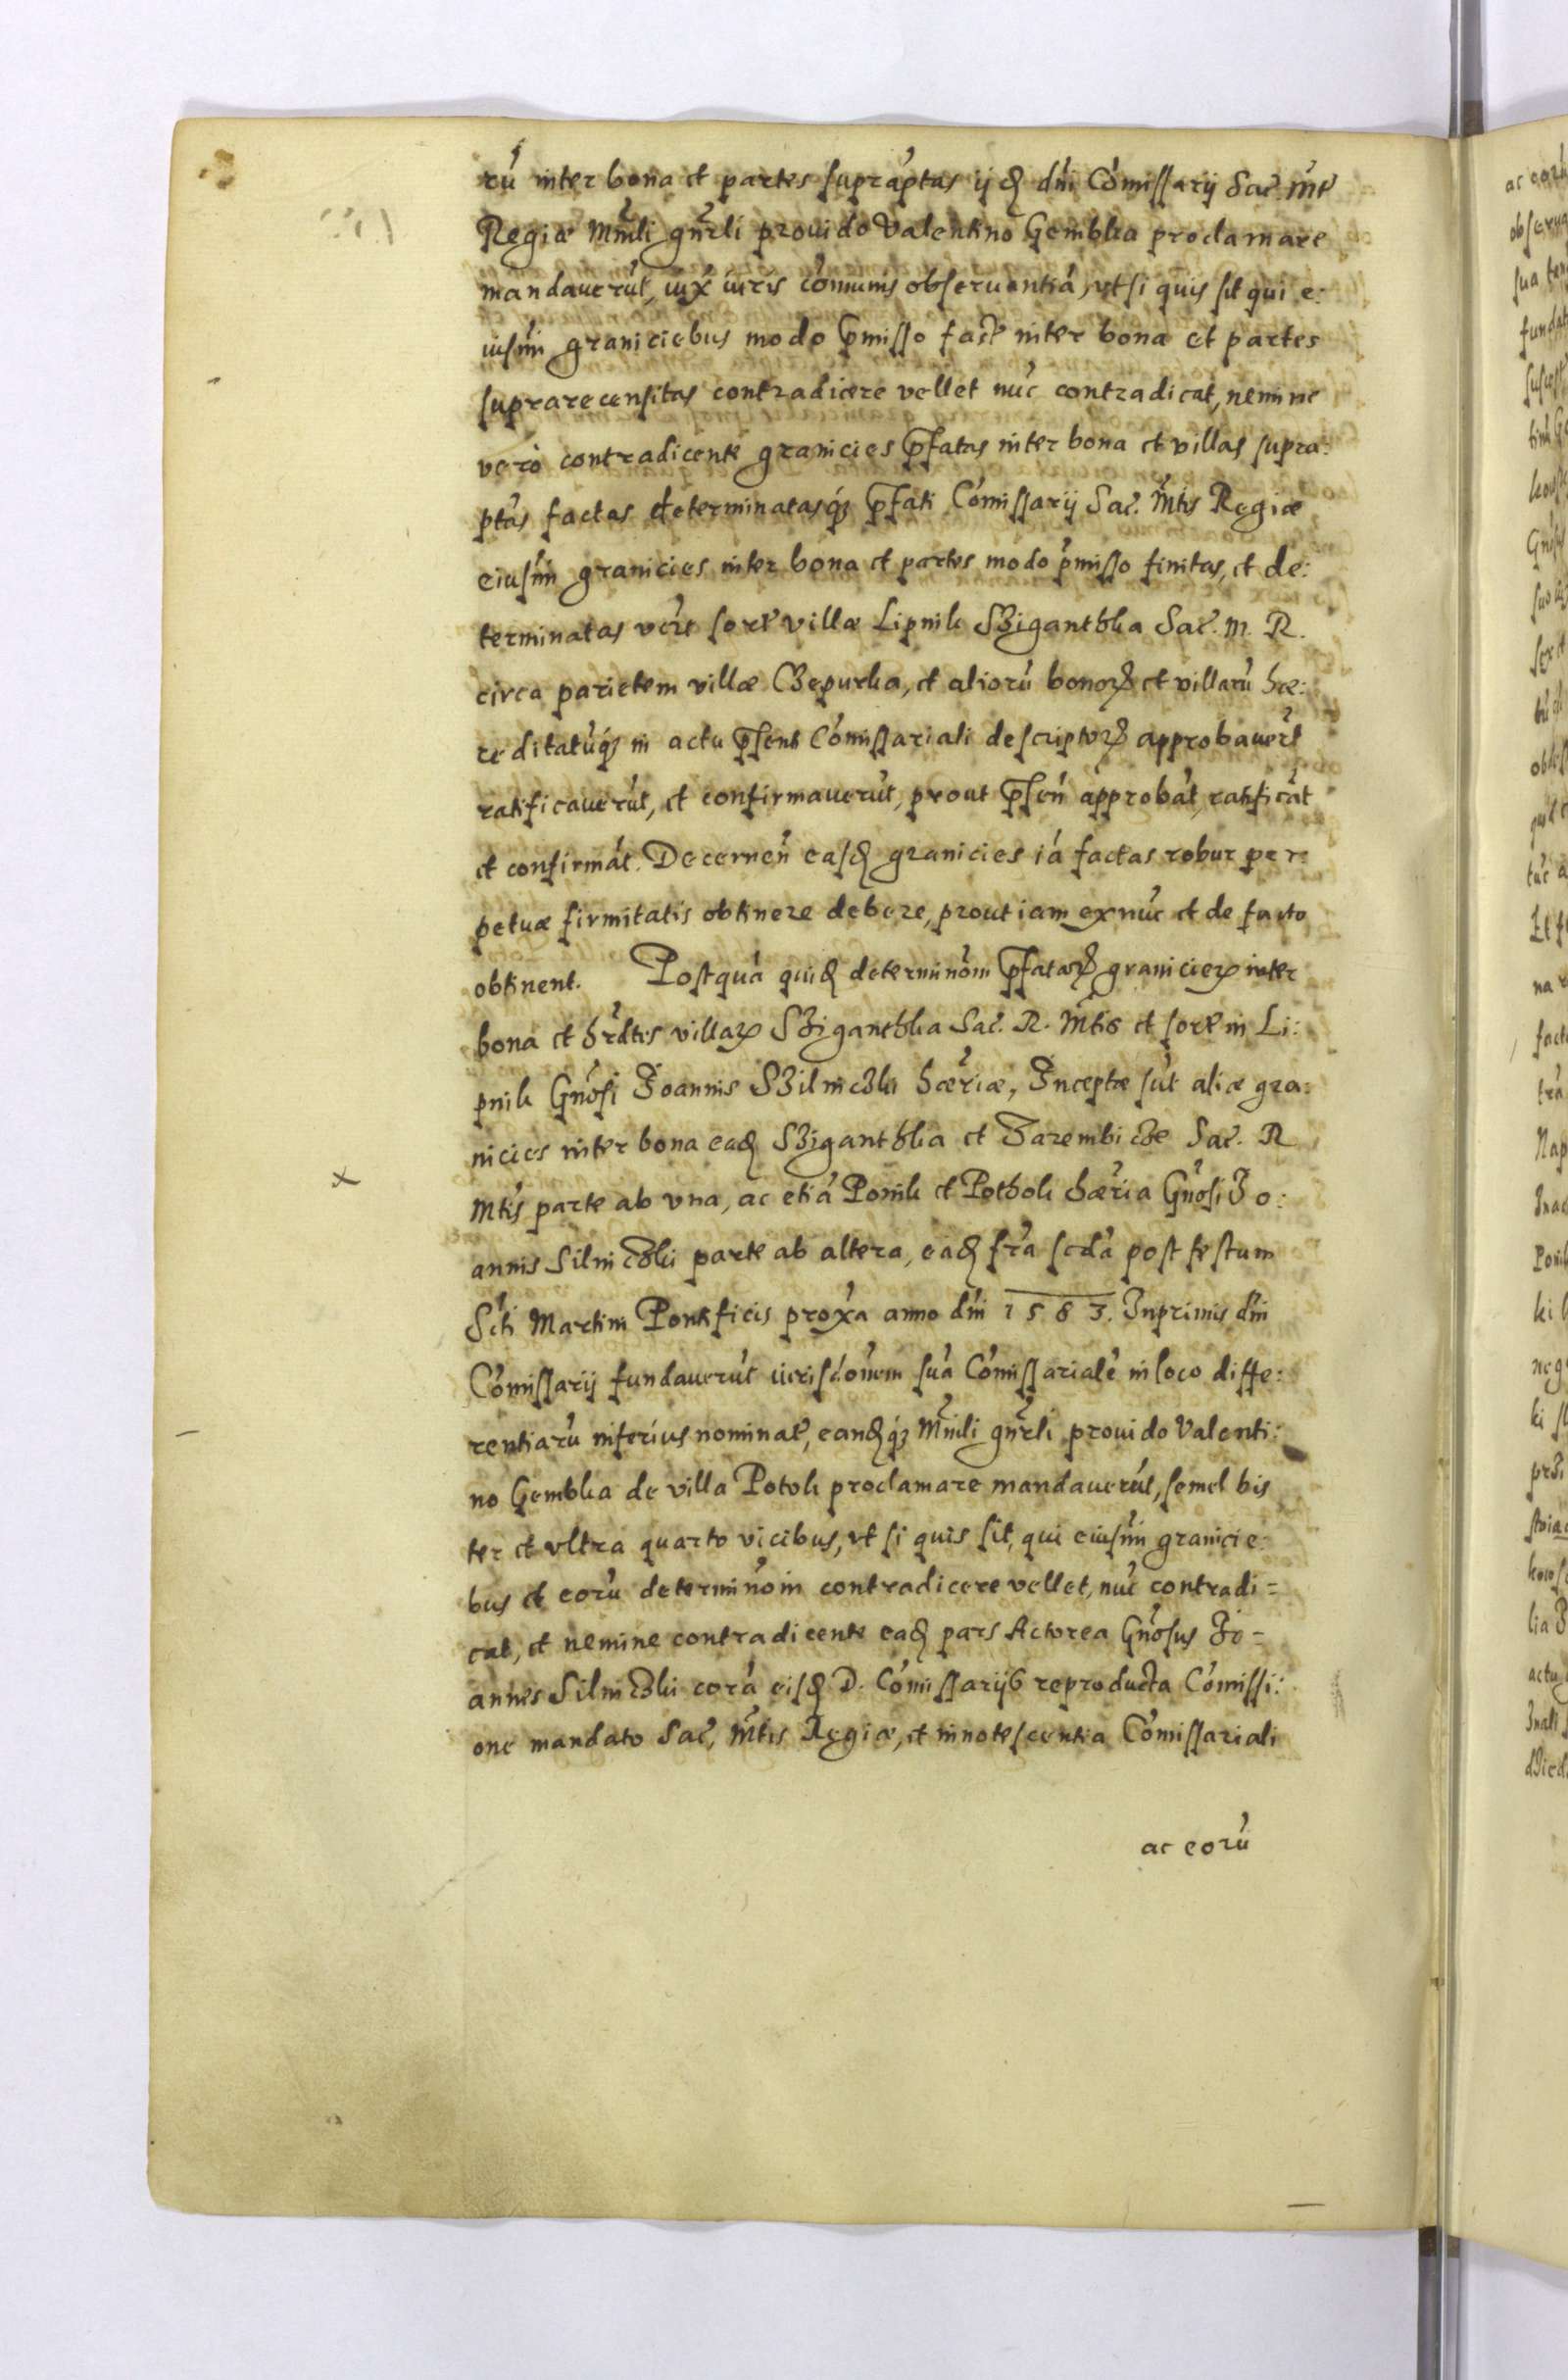 rũ inter bona et partes supraptas ijdẽ dñi Cõmissarij Sac. Mt̃
Regiæ Mñli gñrli prouido Valentino Gembka proclamare
mandauerũt, iux̃ iuris cõmunis obseruantiã, vt si quis sit qui e:
iusm̃ graniciebus modo p̃misso fact̃ inter bona et partes
suprarecensitas contradicere vellet nũc contradicat, nemine
verò contradicente granicies p̃fatas inter bona et villas supra:
ptãs factas determinatasq́ꝫ p̃fati Cõmissarij Sac. M̃tis Regiæ
eiusm̃ granicies inter bona et partes modo p̃misso finitas, et de:
terminatas vers̃ sort̃ villæ Lipnik Sziganthka Sac. M. R.
circa parietem villæ Czepurka, et aliorũ bonoꝝ et villarũ hæ:
reditatũq́ꝫ in actu p̃senti Cõmissariali descriptoꝝ approbauerũt
ratificauerũt, et confirmauerũt, prout p̃sen̄ approbãt, ratificãt
et confirmãt. Decernen̄ easdẽ granicies iã factas robur per:
petuæ firmitatis obtinere debere, prout iam exnũc et de facto
obtinent. Postquã quidẽ determinõm p̃fataꝝ granicieꝝ inter
bona et hr̃dtes villaꝝ Sziganthka Sac. R. M̃tis et sort̃ in Li:
pnik Gñosi Joannis Szilniczki hær̃iæ, Inceptæ sũt aliæ gra:
nicies inter bona eadẽ Sziganthka et Zarembicze Sac. R
Mt̃is parte ab vna, ac etiã Ponik et Pothok hær̃ia Gñosi Jo:
annis Silniczki parte ab altera, eadẽ fr̃a scdã post festum
Scti Martini Pontificis prox̃a anno dñi 1583. Inprimis dñi
Cõmissarij fundauerũt iurisdõnem suã Cõmissarialẽ in loco diffe:
rentiarũ inferius nominat̃, eandẽq́ꝫ Mñli gñrli prouido Valenti:
no Gembka de villa Potok proclamare mandauerũt, semel bis
ter et vltra quarto vicibus, vt si quis sit, qui eiusm̃ granicie:
bus et eorũ determinõm contradicere vellet, nũc contradi=
cat, et nemine contradicente eadẽ pars Actorea Gñosus Jo=
annes Silniczki corã eisdẽ D. Cõmissarijs reproducta Cõmissi:
one mandato Sac. M̃tis Regiæ, et innotescentia Cõmissariali
ac eorũ